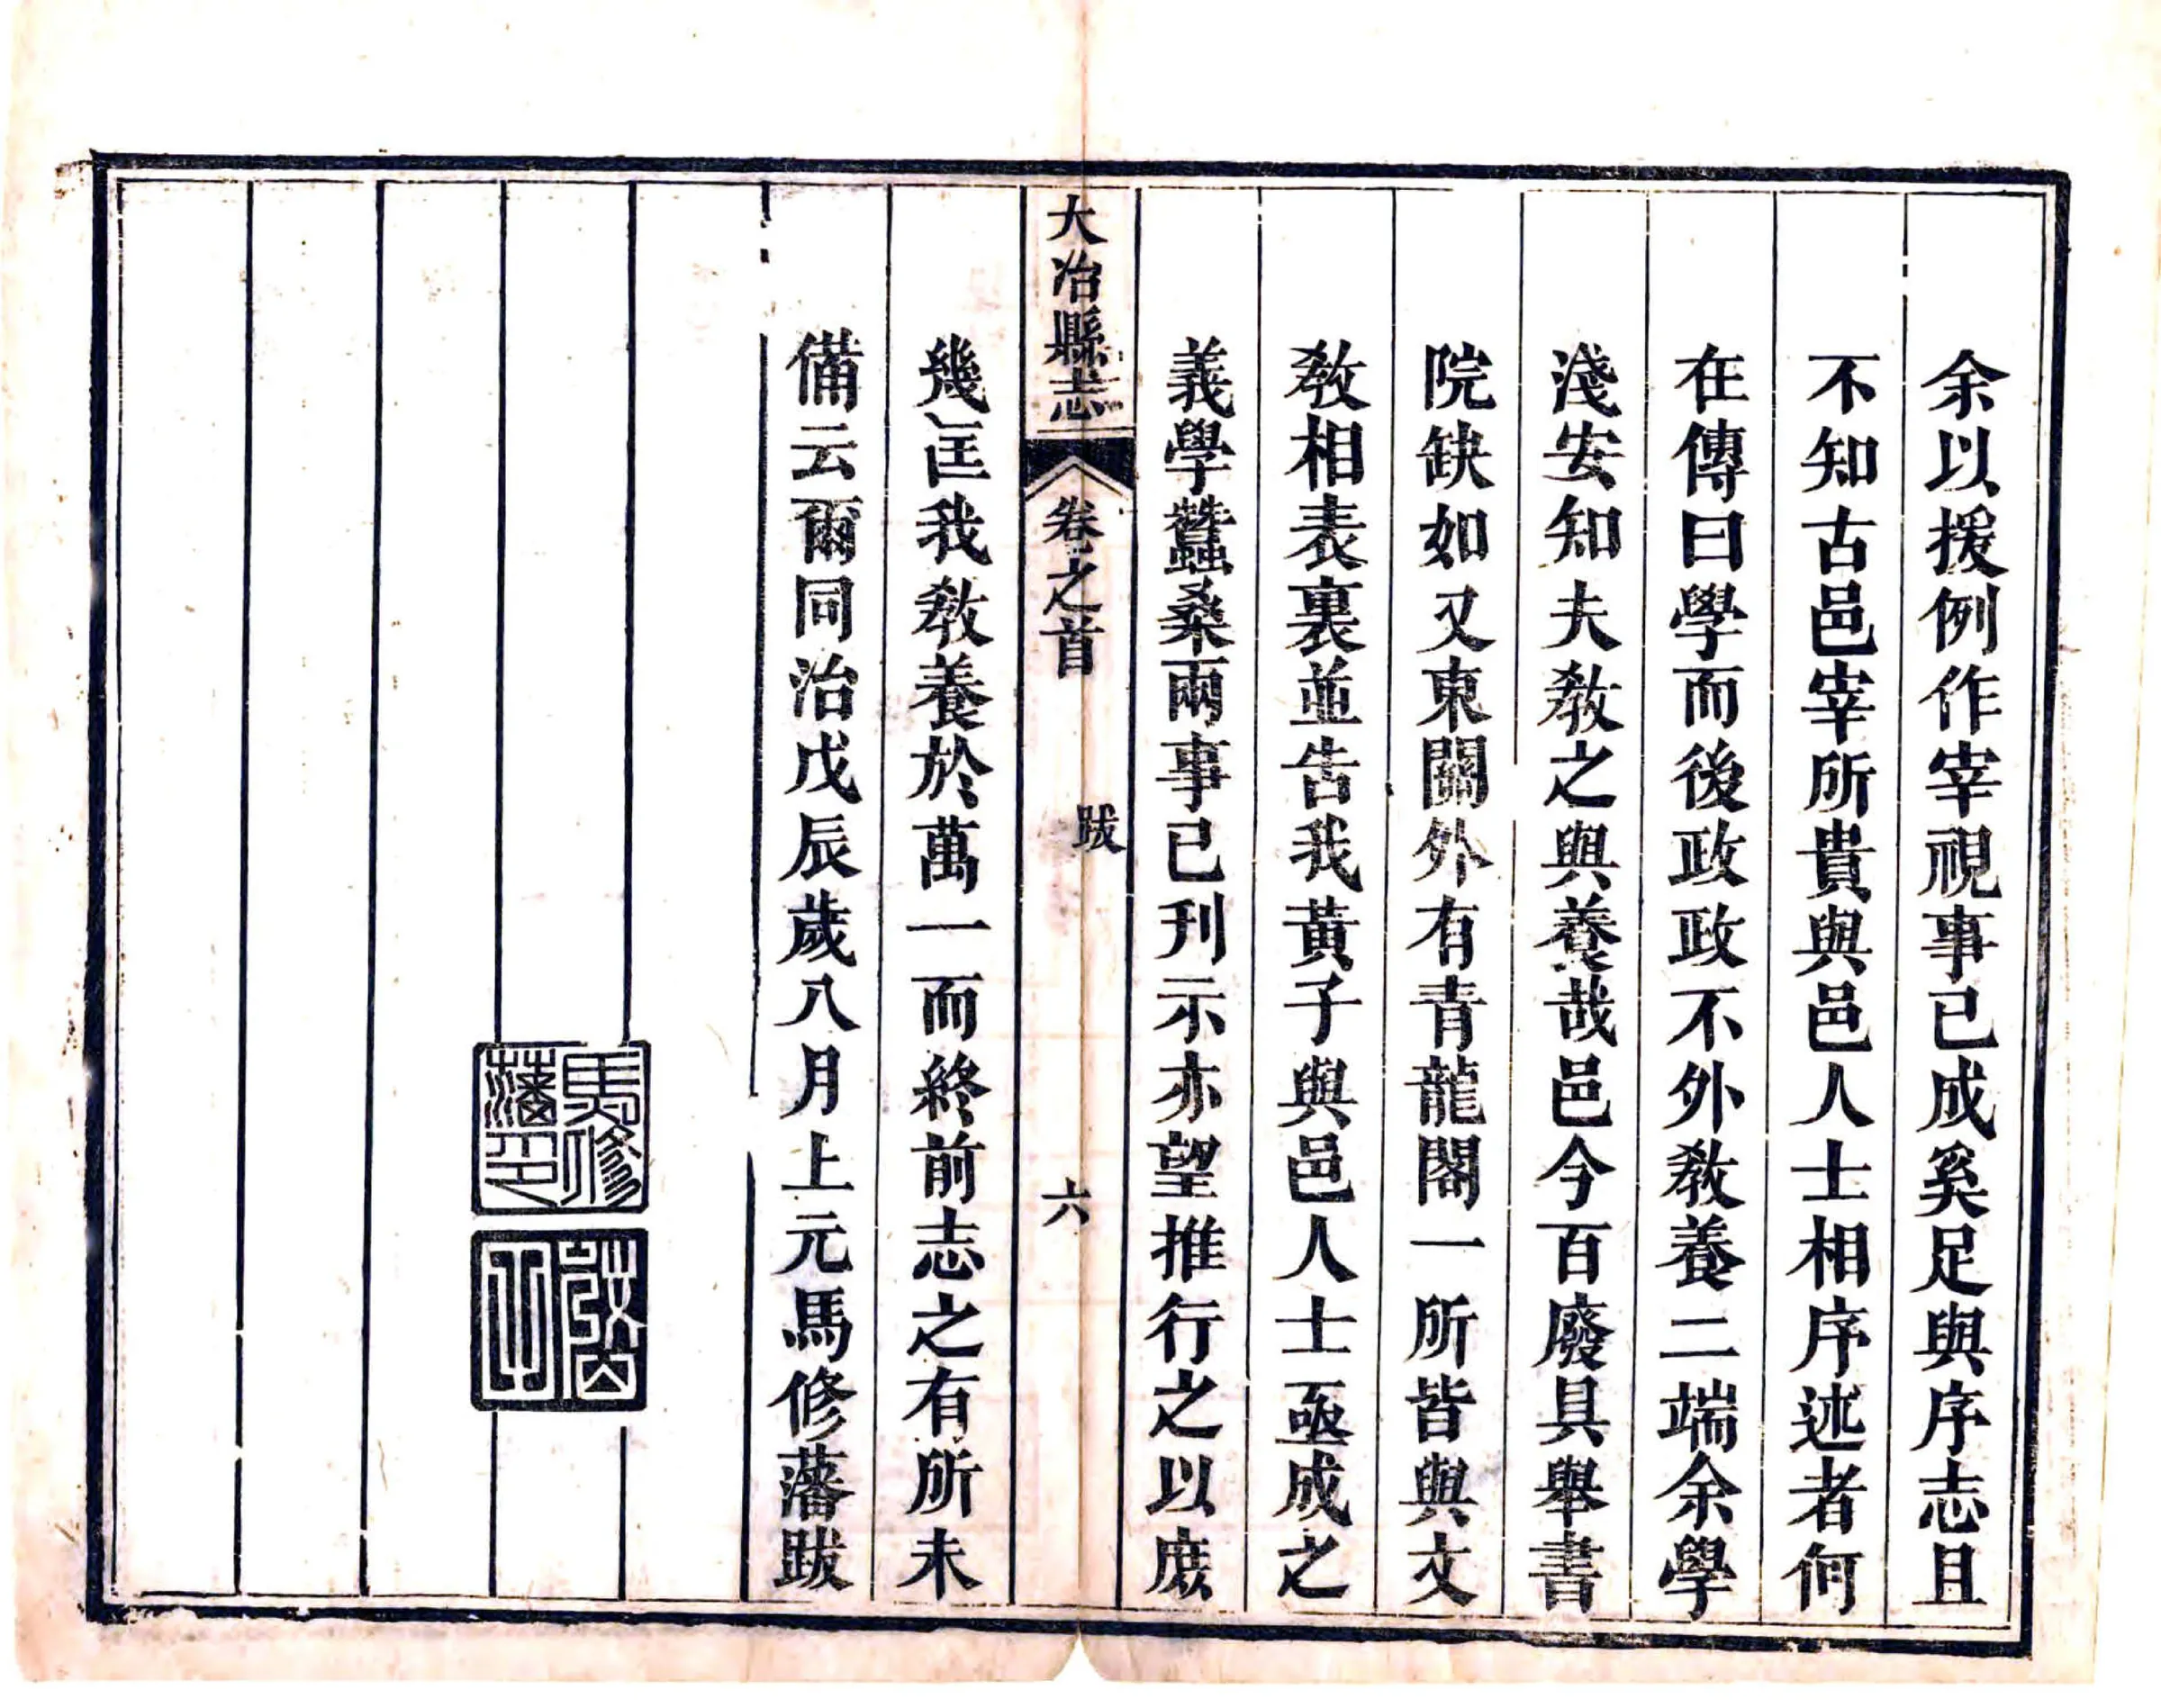 余以援例作宰視事已成奚足與序志且
不知古邑宰所貴與邑人士相序述者何
在傳曰學而後政政不外敎養二端余學
淺安知夫敎之與養哉邑今百廢具舉書
院缺如又東關外有青龍閣一所皆與文
敎相表裏並告我黃子與邑人士亟成之
義學蠶桑兩事已刋示亦望推行之以庶
大冶縣志
卷之首
跋
六
幾匡我敎養於萬一而終前志之有所未
備云爾同治戊辰歲八月上元馬修藩跋
馬修
藩印